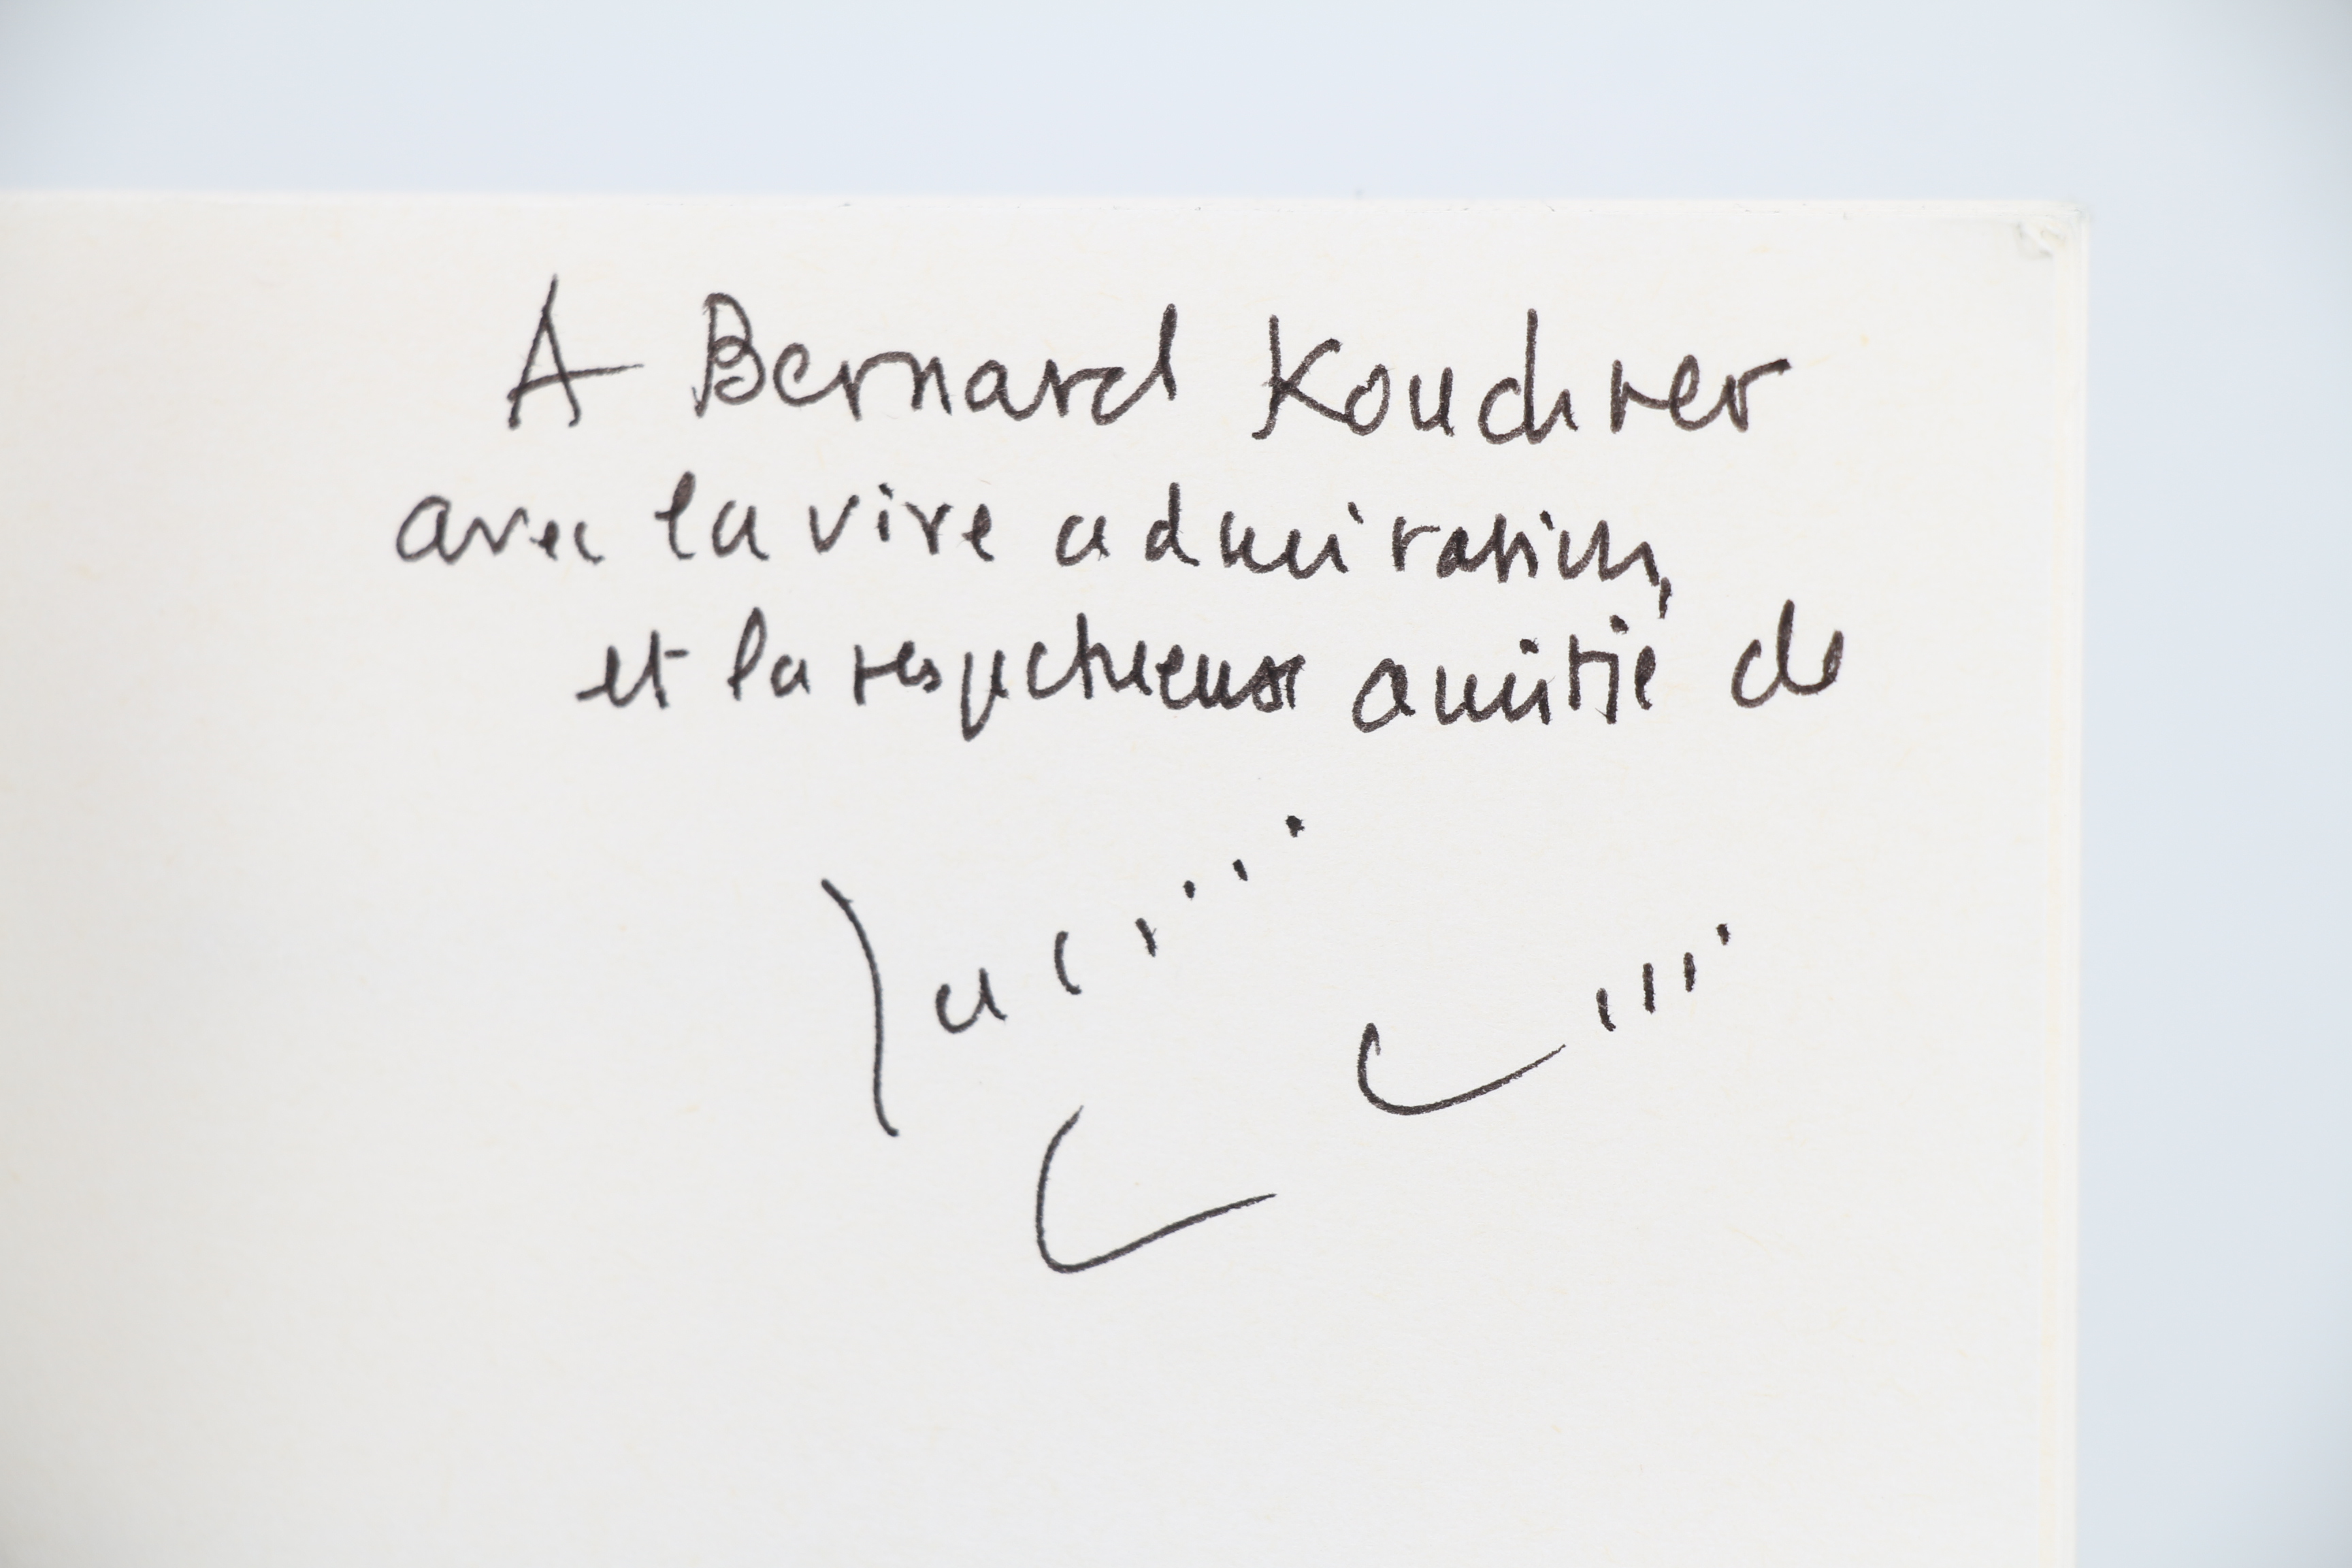 A Bernard Kouchner
avec la vive admiration,
et la respectueuse amitié de